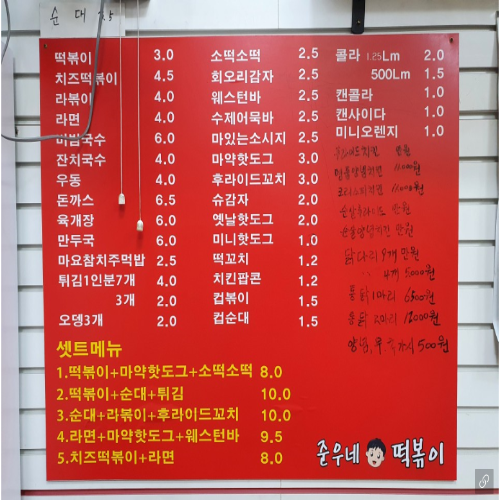 순대
떡볶이 3.0
치즈떡볶이 4.5
라볶이 4.0
라면 4.0
비빔국수 6.0
잔치국수 4.0
우동 4.0
돈까스 6.5
육개장 6.0
만두국 6.0
마요참치주먹밥 2.5
튀김1인분7개 4.0
3개 2.0
오뎅3개 2.0
소떡소떡 2.5
회오리감자 2.5
웨스턴바 2.5
수제어묵바 2.5
마있는소시지 2.5
마약핫도그 3.0
후라이드꼬치 3.0
슈감자 2.0
옛날핫도그 2.0
미니핫도그 1.0
떡꼬치 1.2
치킨팝콘 1.2
컵볶이 1.5
컵순대 1.5
콜라 1.25Lm 2.0
500Lm 1.5
캔콜라 1.0
캔사이다 1.0
미니오렌지 1.0
만원
순살후라이드 만원
순살양념치킨 만원
닭다리 9개 만원
4개 5000원
통닭 1마리 6500원
통닭 2마리 12000원
양념, 무 추가시 500원
셋트메뉴
1.떡볶이+마약핫도그+소떡소떡 8.0
2.떡볶이+순대+튀김 10.0
3.순대+라볶이+후라이드꼬치 10.0
4.라면+마약핫도그+웨스턴바 9.5
5.치즈떡볶이+라면 8.0
준우네 떡볶이